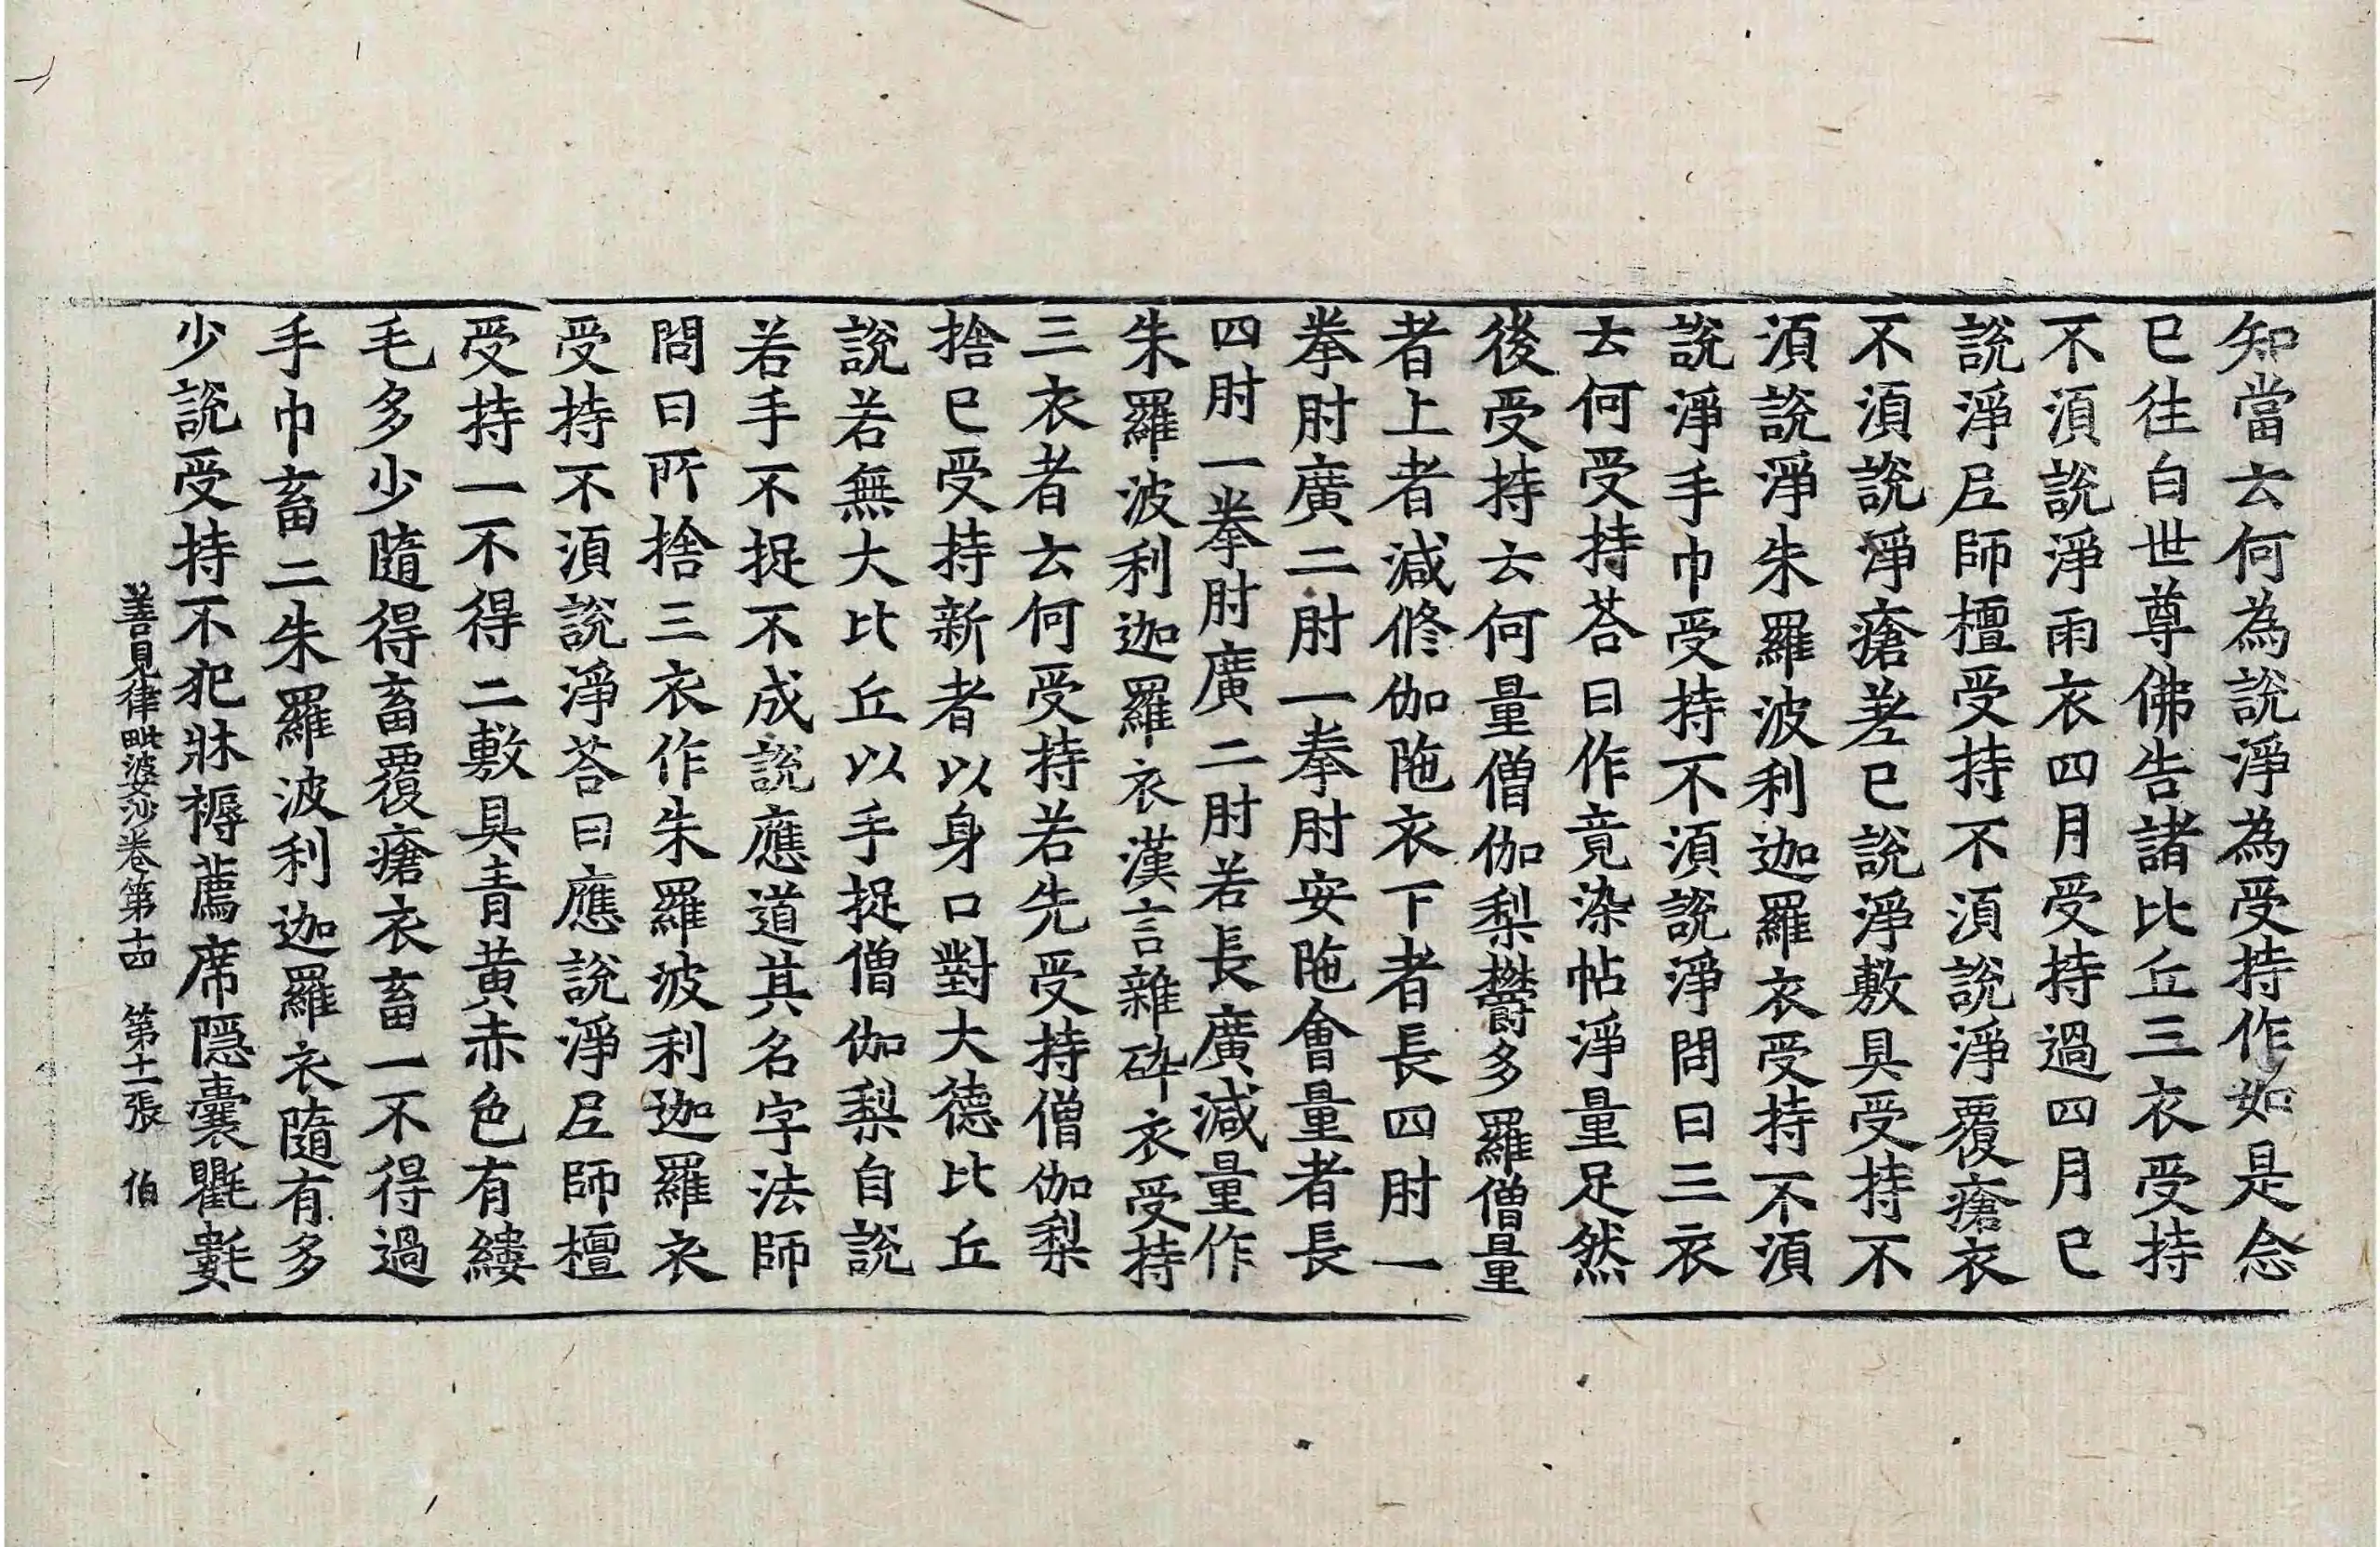 知當云何為說淨為受持作如是念
已往白世尊佛告諸比丘三衣受持
不湏說淨雨衣四月受持過四月已
說淨𡰱師檀受持不湏說淨覆瘡衣
不湏說淨瘡差已說淨敷具受持不
湏說淨朱羅波利迦羅衣受持不湏
說淨手巾受持不湏說淨問曰三衣
云何受持荅曰作竟染帖淨量足然
後受持云何量僧伽梨欝多羅僧量
者上者減修伽陁衣下者長四肘一
拳肘廣二肘一拳肘安陁會量者長
四肘一拳肘廣二肘若長廣減量作
朱羅波利迦羅衣漢言雜碎衣受持
三衣者云何受持若先受持僧伽梨
捨已受持新者以身口對大德比丘
說若無大比丘以手捉僧伽梨自說
若手不捉不成說應道其名字法師
問曰所捨三衣作朱羅波利迦羅衣
受持不湏說淨荅曰應說淨𡰱師檀
受持一不得二敷具青黃赤色有縷
毛多少隨得畜覆瘡衣畜一不得過
手巾畜二朱羅波利迦羅衣隨有多
少說受持不犯牀褥薦席隱囊氍𣰽
善見律毗婆沙卷第十四 第十二張 伯